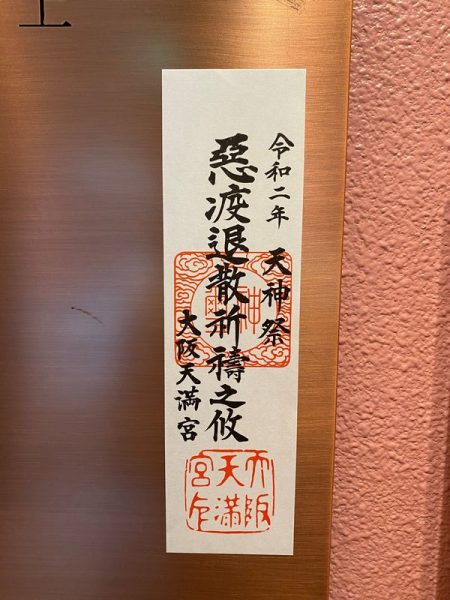 令和二年 天神祭
惡疫退散祈禱之攸
大阪天満宮
大阪
天満
宮